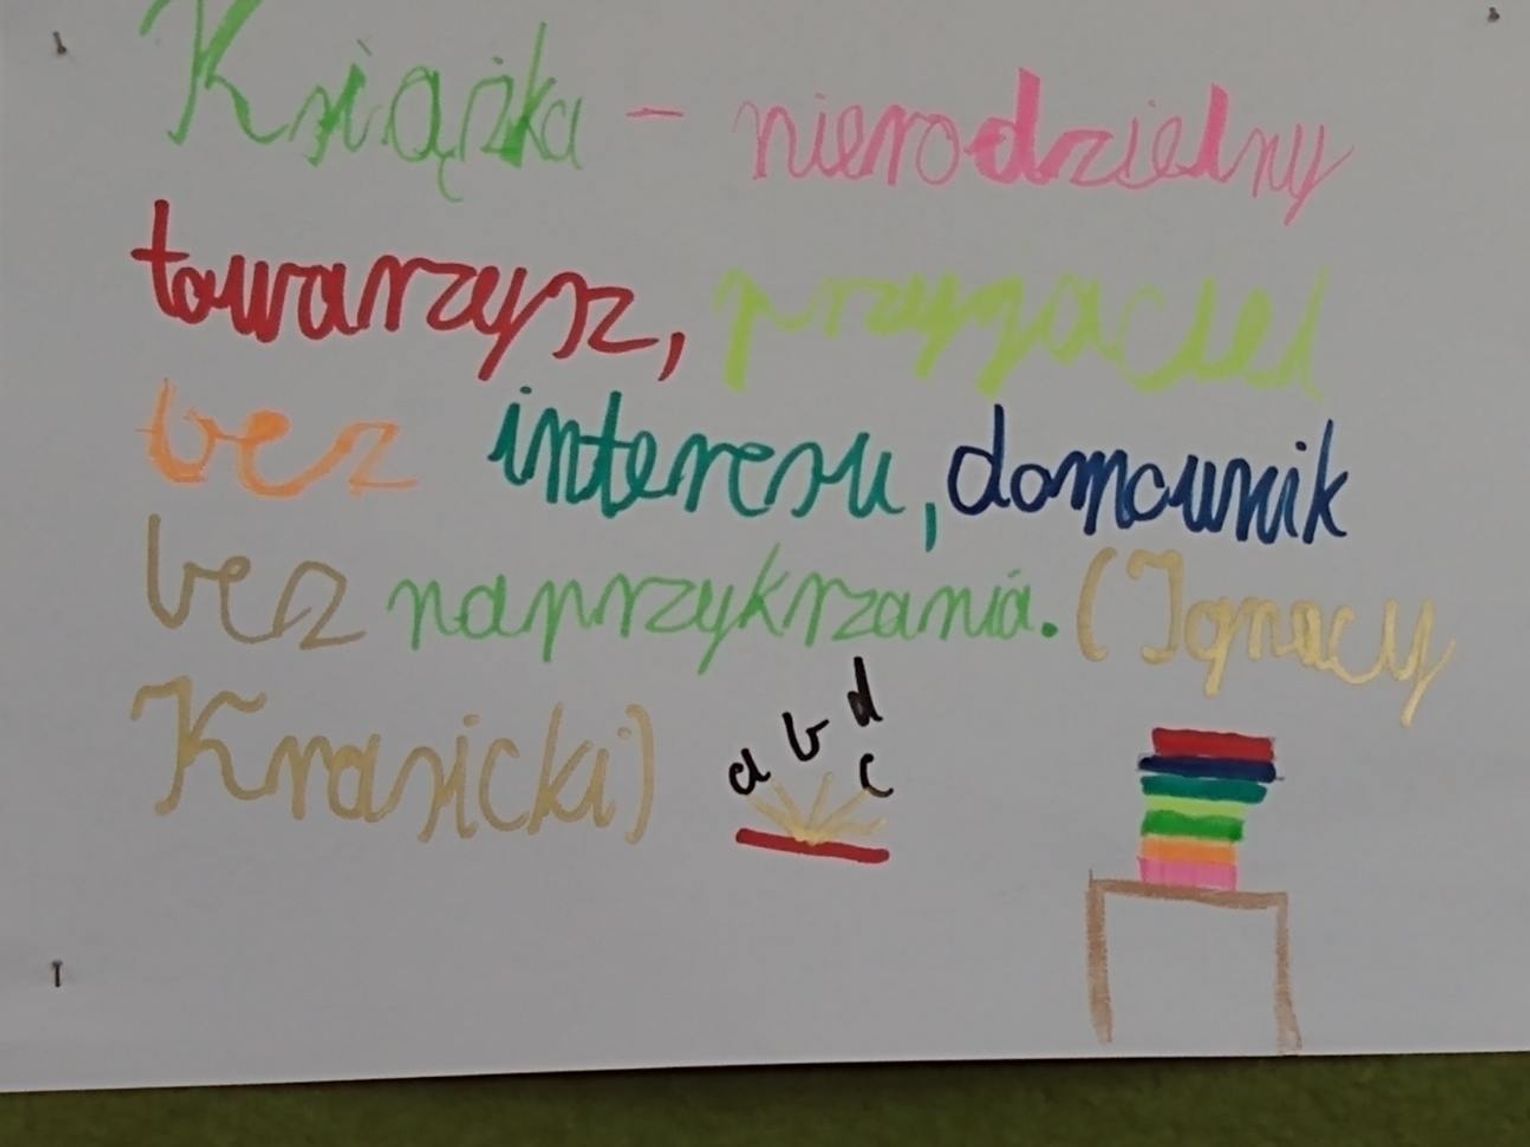 Książka - nierodzielny
towarzysz, przyjaciel
bez interesu, domownik
bez naprzykrzania. (Ignacy
Krasicki)
a b d
c